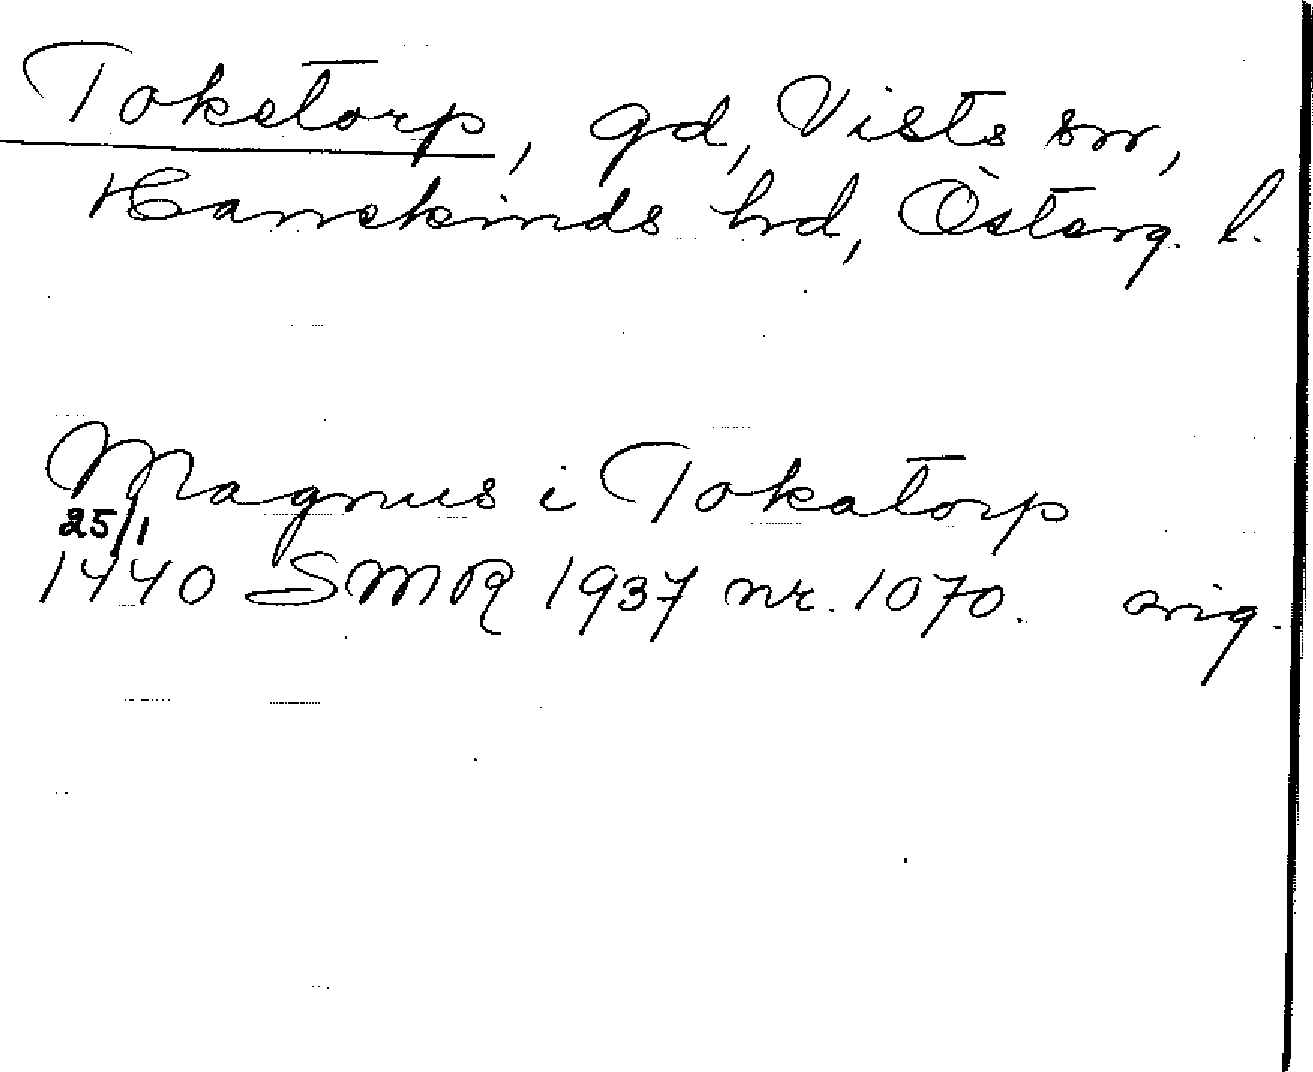 Toketorp, gd, Vists sn,
Hanekinds hd, Österg. l.
Magnus i Tokatorp
25/1
1440 SMR 1937 nr. 1070. orig.